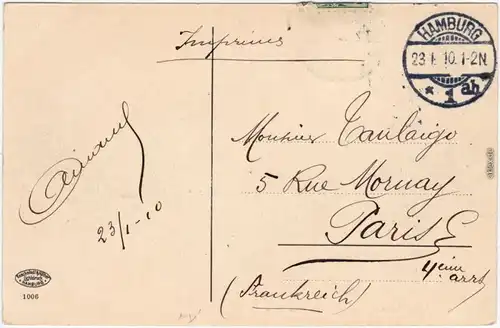 Imprimés
HAMBURG
23.1.10.1-2N.
* 1 ab
Monsieur
5 Rue Mornay
Paris E
4eim
arrt
(Frankreich)
23/1-10
HAMBURG
1006